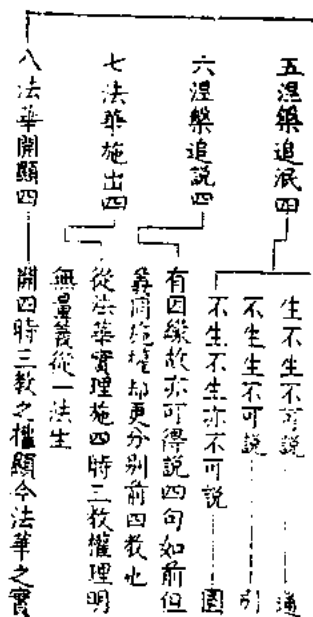 五涅槃追泯四
生不生不可說 通
不生生不可說 別
不生不生亦不可說 圓
六涅槃追説四
有因緣故亦可得說四句如前但
義同施權却更分别前四教也
七法華施出四
從法華實理施四時三教權理明
無量義從一法生
八法華開顯四 開四時三教之權顯令法華之實